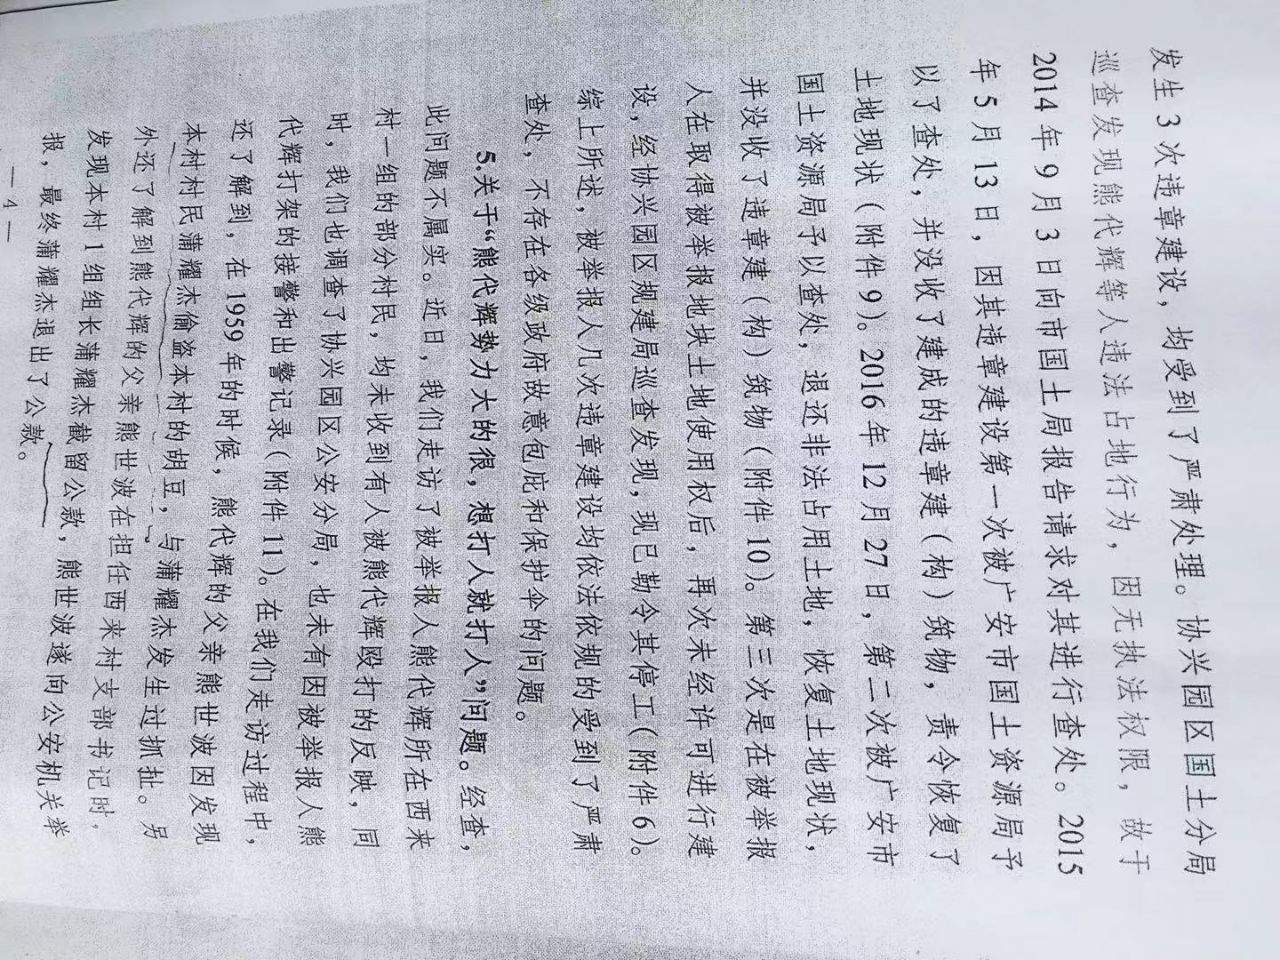 发生3次违章建设，均受到了严肃处理。协兴园区国土分局
巡查发现熊代辉等人违法占地行为，因无执法权限，故于
2014年9月3日向市国土局报告请求对其进行查处。2015
年5月13日，因其违章建设第一次被广安市国土资源局予
以了查处，并没收了建成的违章建（构）筑物，责令恢复了
土地现状（附件9）。2016年12月27日，第二次被广安市
国土资源局予以查处，退还非法占用土地，恢复土地现状，
并没收了违章建（构）筑物（附件10）。第三次是在被举报
人在取得被举报地块土地使用权后，再次未经许可进行建
设，经协兴园区规建局巡查发现，现已勒令其停工（附件6）。
综上所述，被举报人几次违章建设均依法依规的受到了严肃
查处，不存在各级政府故意包庇和保护伞的问题。
5.关于“熊代辉势力大的很，想打人就打人”问题。经查，
此问题不属实。近日，我们走访了被举报人熊代辉所在西来
村一组的部分村民，均未收到有人被熊代辉殴打的反映，同
时，我们也调查了协兴园区公安分局，也未有因被举报人熊
代辉打架的接警和出警记录（附件11）。在我们走访过程中，
还了解到，在1959年的时候，熊代辉的父亲熊世波因发现
本村村民蒲耀杰偷盗本村的胡豆，与蒲耀杰发生过抓扯。另
外还了解到熊代辉的父亲熊世波在担任西来村支部书记时，
发现本村1组组长蒲耀杰截留公款，熊世波遂向公安机关举
报，最终蒲耀杰退出了公款。
— 4 —